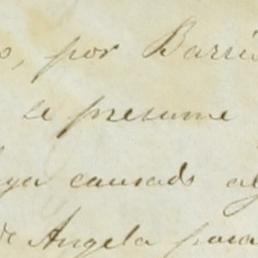 o, por Barri
se presume
ya causado al
de Angela para